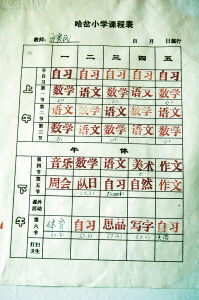 哈岔小学课程表
教师： 自 月 日施行
一 二 三 四 五
上午
早自习 自习 自习 自习 自习 自习
第一节 数学 语文 数学 语文 数学
第二节 语文 数学 语文 数学 语文
第三节 数学 语文 数学 语文 数学
午 休
下午
第四节 音乐 数学 语文 美术 作文
第五节 周会 队日 自习 自然 作文
课外活动
第六节 体育 自习 思品 写字 自习
打扫卫生